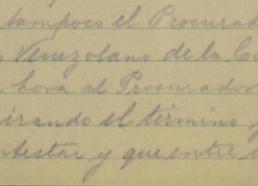 tampoco el Procurad
Venezolano de la Cu
hora al Procurador
irando el término y
ntestar y que entre